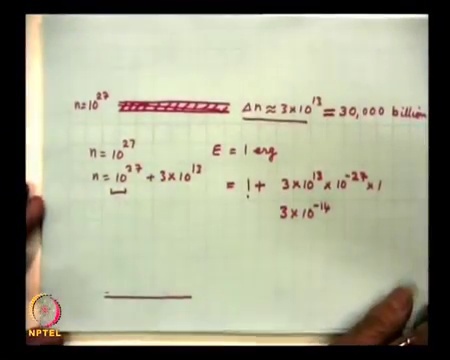 n=10²⁷ Δn ≈ 3×10¹³ = 30,000 billion
n = 10²⁷ E = 1 erg
n = 10²⁷ + 3×10¹³ = 1 + 3×10¹³ × 10⁻²⁷ × 1
3×10⁻¹⁴
NPTEL